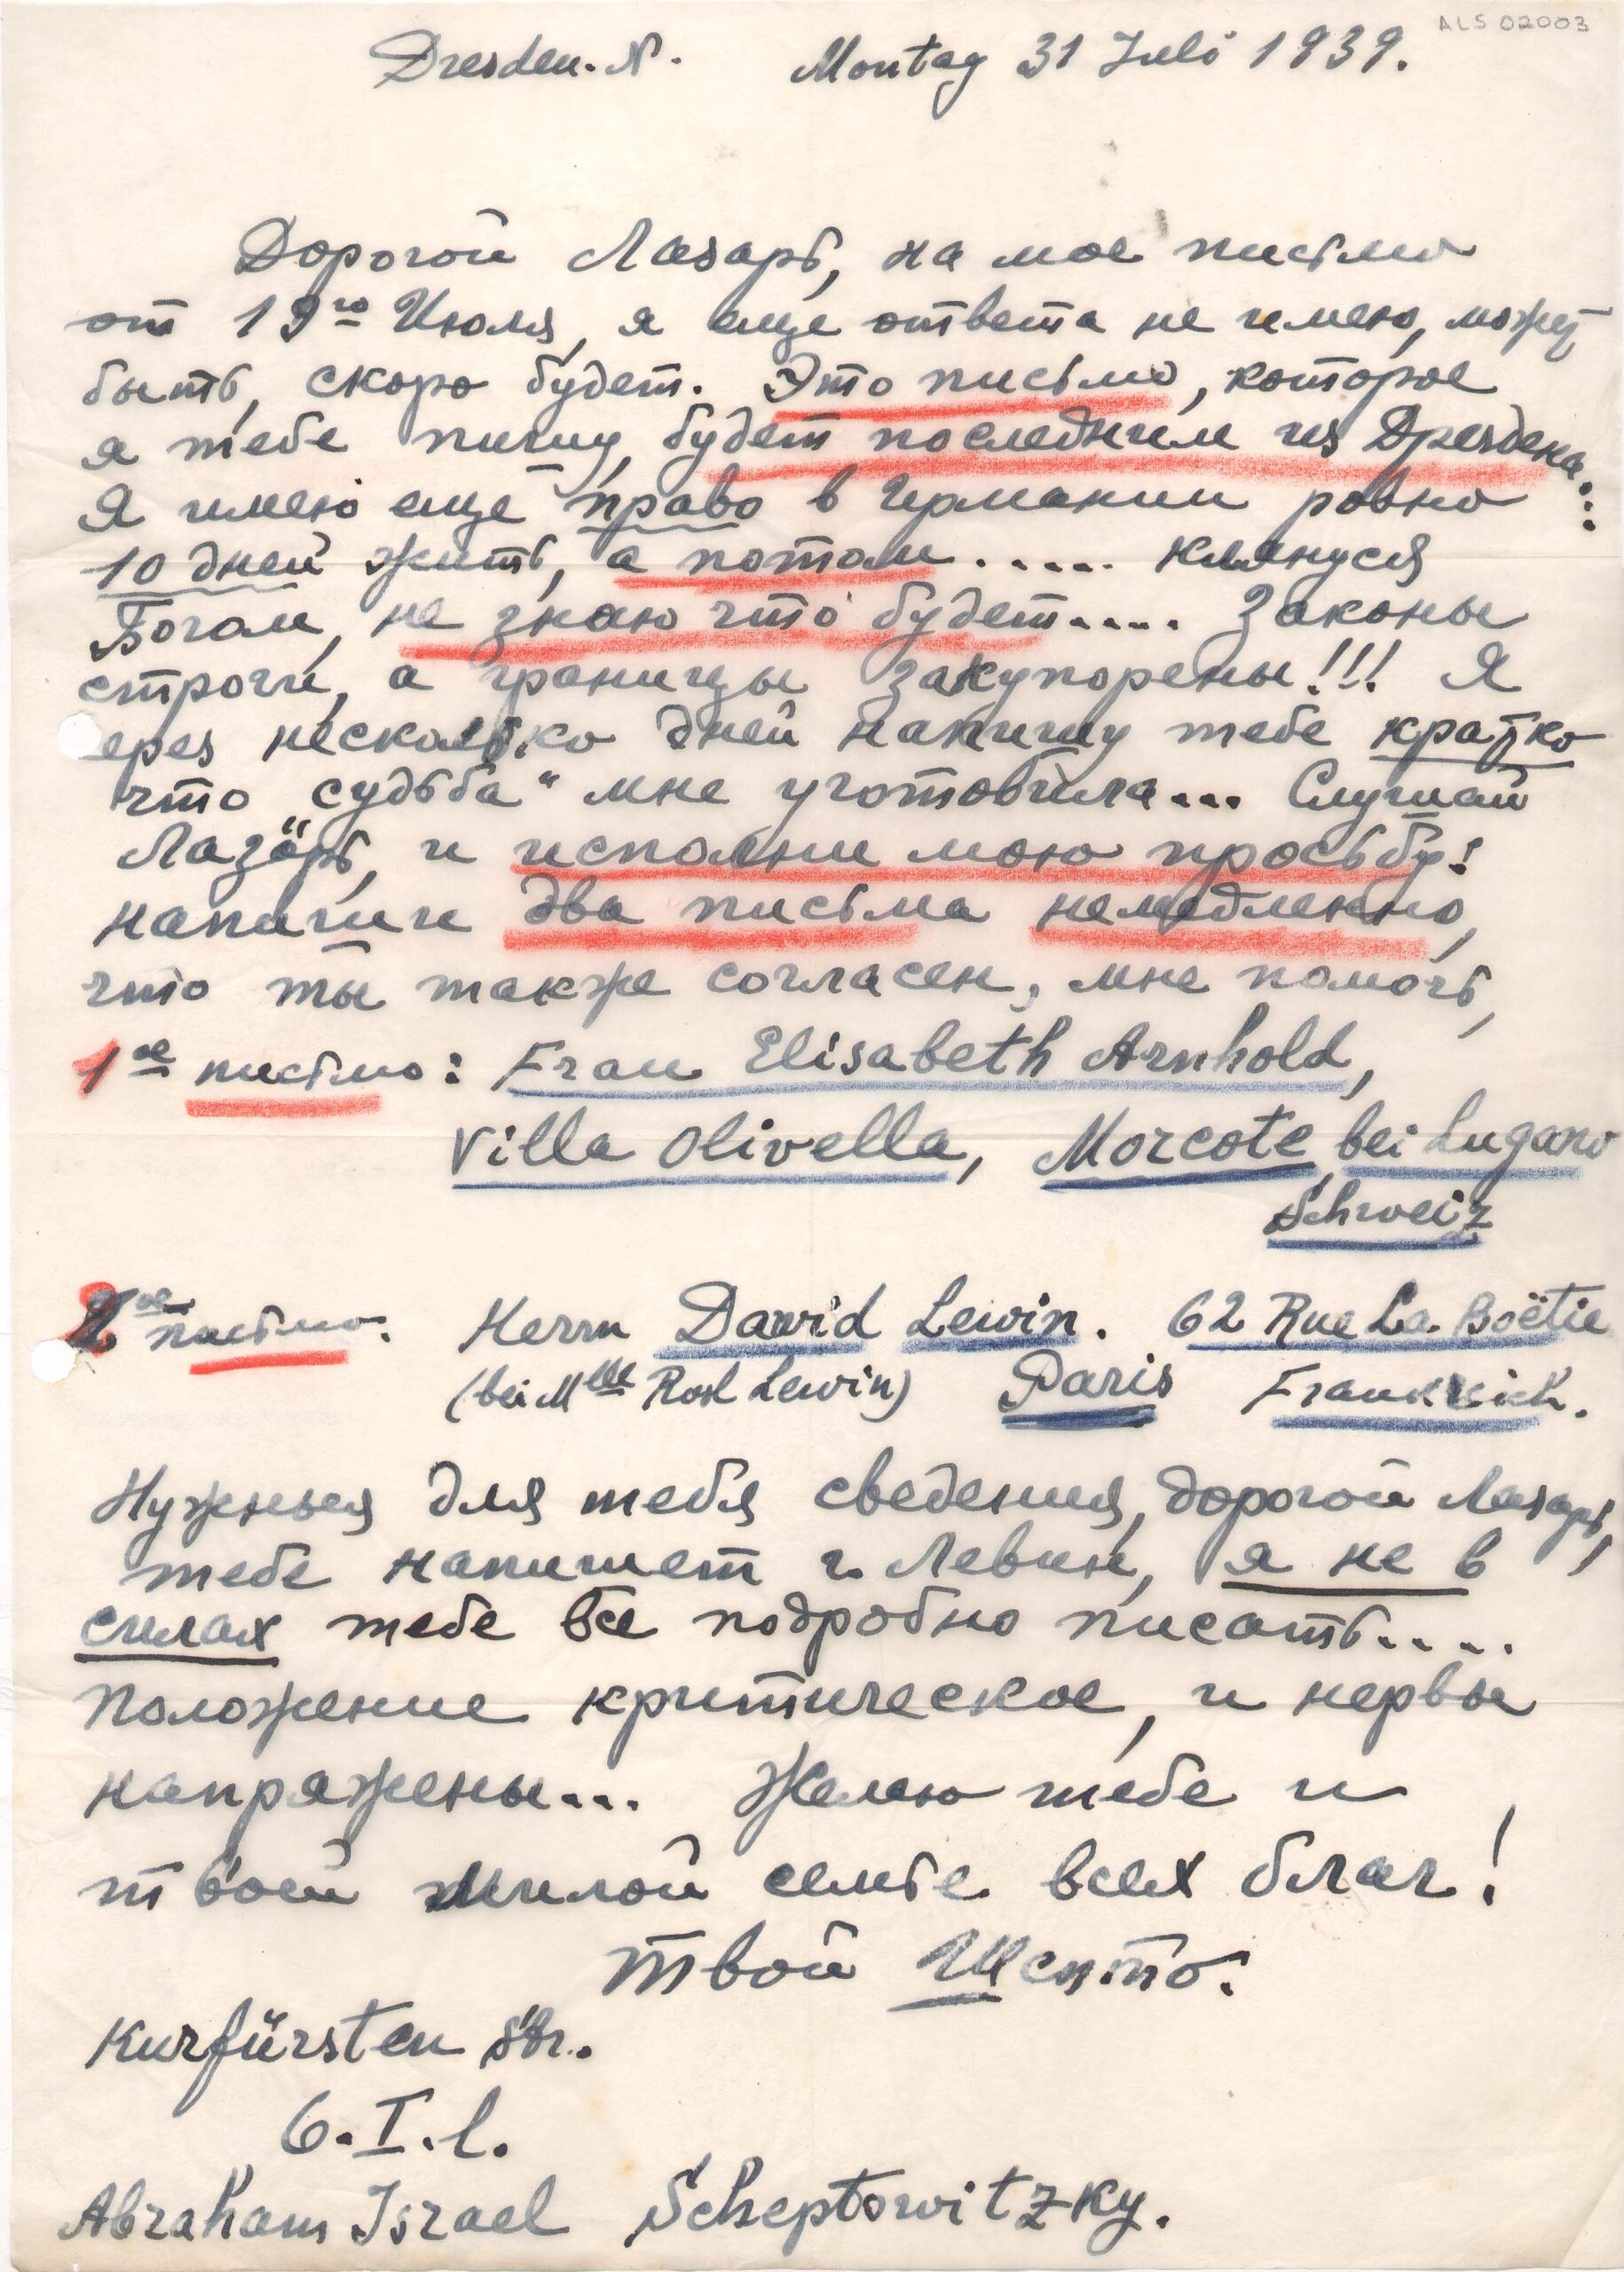 ALS 02003
Dresden. N. Montag 31 Juli 1939.
Дорогой Лазарь, на мое письмо
от 19го Июля, я еще ответа не имею, может
быть, скоро будет. Это письмо, которое
я тебе пишу, будет последним из Дрездена.:
Я имею еще право в Германии ровно
10 дней жить, а потом..... клянуся
Богом, не знаю что будет.... Законы
строги, а границы закупорены!!! Я
ерез несколько дней напишу тебе кратко
что „судьба“ мне уготовила... Слушай
Лазарь, и исполни мою просьбу!
напиши два письма немедленно,
что ты также согласен, мне помочь,
1ое письмо: Frau Elisabeth Arnhold,
Villa Olivella, Morcote bei Lugano
Schweiz
2ое письмо: Herrn David Lewin. 62 Rue La Boëtie
(bei Mlle Rosl Lewin) Paris Frankreich.
Нужныя для тебя сведения, дорогой Лазарь,
тебе напишет г. Левин, я не в
силах тебе все подробно писать....
положение критическое, и нервы
напряжены... Желаю тебе и
твоей милой семье всех благ!
твой Шепто.
Kurfürsten Str.
6. I. l.
Abraham Israel Scheptowitzky.